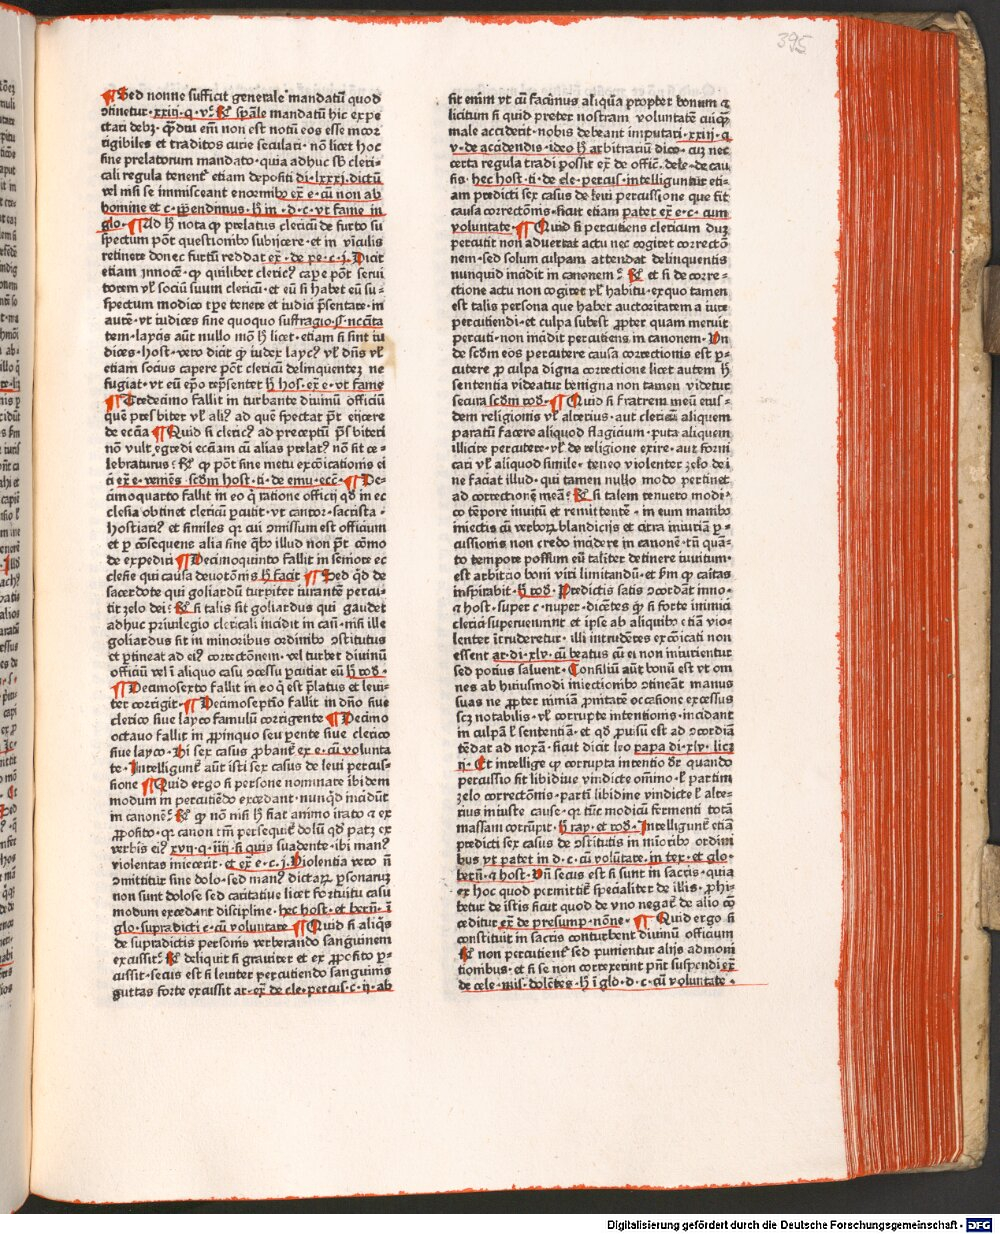 395
¶Sed nonne sufficit generale mandatū quod
ↄtinetur·xxiij·q·vᵉ R̃ sp̄ale mandatū hic expe
ctari debȝ·q̄diu em̄ non est notū eos esse īcor
rigibiles et traditos curie seculari·nō licet hoc
sine prelatorum mandato·quia adhuc sb̄ cleri-
cali regula tenent᷑ etiam depositi di·lxxxj·dictū
vel nisi se immisceant enormibꝰ ex̄ e·cū non ab
homine et c·ꝑpendimus·h̄ in·d·c·vt fame in
glo·¶Ad h̄ nota ꝙ prelatus clericū de furto su
spectum pōt questionibꝰ subijcere·et in vīculis
retinere donec furtū reddat ex̄·de pe·c·j·Dicit
etiam īnocē·ꝙ quilibet clericꝰ capere pōt serui
torem vl̓ sociū suum clericū·et eū si habet eū su-
spectum modico tꝑe tenere et iudici p̄sentare·in
autē·vt iudices sine quoquo suffragio·§·necc̄ita
tem·laycis aūt nullo mō h̄ licet·etiam si sint iu
dices·host·vero dicit ꝙ iudex laycꝰ vl̓ dn̄s vl̓
etiam socius capere pōt clericū delinquētez ne
fugiat·vt eū ep̄o rep̄sentet h̄ hos·ex̄ e·vt fame
¶Tredecimo fallit in turbante diuinū officiū
quē presbiter vl̓ aliꝰ ad quē spectat pōt eijcere
de ecc̄ia ¶Quid si clericꝰ ad preceptū p̄sbiteri
nō vult egredi ecc̄iam cū alias prelatꝰ nō sit ce-
lebraturus R̃ ꝙ pōt sine metu excōicationis ei
ci ex̄ e·veniēs scd̄m host·ti·de emu·ecc̄·¶De-
cimoquarto fallit in eo q̄ ratione officij qd̄ in ec
clesia obtinet clericū ꝑcutit·vt cantor·sacrista·
hostiariꝰ et similes qr cui ↄmissum est officium
et ꝑ cōsequens alia sine qͥbꝰ illud non pōt cōmo
de expediri ¶Decimoquinto fallit in seniore ec
clesie qui causa deuotōnis h̄ facit ¶Sed qd̄ de
sacerdote qui goliardū turpiter iurantē percu-
tit zelo dei R̃ si talis sit goliardus qui gaudet
adhuc priuilegio clericali incidit in cañ·nisi ille
goliardus sit in minoribus ordinibꝰ ↄstitutus
et ꝑtineat ad eiꝰ correctōnem·vel turbet diuinū
officiū vel ī aliquo casu ↄcessu ꝑcutiat eū h̄ rod̓·
¶Decimosexto fallit in eo q̓ est p̄latus et leui-
ter corrigit·¶Decimoseptīo fallit in dn̄o siue
clerico siue layco famulū corrigente ¶Decimo
octauo fallit in ꝓpinquo seu ꝑente siue clerico
siue layco·Hi sex casus ꝓbant᷑ ex̄ e·cū volunta
te·Intelligunt᷑ aūt isti sex casus de leui percus-
sione ¶Quid ergo si persone nominate ibidem
modum in percutiēdo excedant·nunqd̄ incidūt
in canonē R̃ ꝙ nō nisi h̄ fiat animo irato ⁊ ex
ꝓposito·qr canon tm̄ ꝑsequit᷑ dolū qd̄ patȝ ex
verbis eiꝰ xvij·q·iiij·si quis suadente·ibi manꝰ
violentas iniecerit·et ex̄ e·c·j·Violentia vero n̄
ↄmittitur sine dolo·sed manꝰ dictaꝝ ꝑsonaruȝ
non sunt dolose sed caritatiue licet fortuitu casu
modum excedant discipline·hec host·et bern̄·ī
glo·supradicti e·cū voluntate ¶Quid si aliq̄s
de supradictis personis verberando sanguinem
excussit R̃ deliquit si grauiter et ex ꝓposito ꝑ-
cussit·secus est si leuiter percutiendo sanguinis
guttas forte excussit ar·ex̄ de cle·percus·c·ij·ab
sit enim vt cū facimus aliqua propter bonum ⁊
licitum si quid preter nostram voluntatē cuiqꝫ
male acciderit·nobis debeant imputari·xxiij·q
v·de accidendis·ideo h̄ arbitrariū dico·cuȝ nec
certa regula tradi possit ex̄ de offic̄·dele·de cau
sis·hec host·ti·de cle·percus·intelligunt᷑ eti-
am predicti sex casus de leui percussione que fit
causa correctōnis·sicut etiam patet ex̄ e·c·cum
voluntate·¶Quid si percutiens clericum duȝ
percutit non aduertat actu nec cogitet correctō
nem·sed solum culpam attendat delinquentis
nunquid incidit in canonem R̃ et si de corre-
ctione actu non cogitet vl̓ habitu·exquo tamen
est talis persona que habet auctoritatem a iure
percutiendi·et culpa subest ꝓpter quam meruit
percuti·non incidit percutiens in canonem·Vn
de scd̄m eos percutere causa correctionis est ꝑ-
cutere ꝓ culpa digna correctione licet autem h̄
sententia videatur benigna non tamen videtur
secura scd̄m rod̓·¶Quid si fratrem meū eius-
dem religionis vl̓ alterius·aut clericū aliquem
paratū facere aliquod flagicium·puta aliquem
illicite percutere·vl̓ de religione exire·aut forni
cari vl̓ aliquod simile·teneo violenter zelo dei
ne faciat illud·qui tamen nullo modo pertinet
ad correctionē meā R̃ si talem tenuero modi-
co tēpore inuitū et remittentē·in eum manibꝰ
iniectis cū verboꝝ blandicijs et citra iniuriā ꝑ-
cussionis non credo incidere in canonē·tn̄ quā-
to tempore possum eū taliter detinere inuitum·
est arbitrio boni viri limitandū·et s̄m ꝙ caritas
inspirabit·h̄ rod̓·Predictis satis ↄcordāt inno·
⁊ host·super c·nuper·dicētes ꝙ si forte inimici
clerici superuenirent et ipse ab aliquibꝰ etiā vio-
lenter ītruderetur·illi intrudētes excōicati non
essent ar·di·xlv·cū beatus cū ei non iniurientur
sed potius saluent·Consiliū aūt bonū est vt om
nes ab huiusmodi iniectionibꝰ ↄtineāt manus
suas ne ꝓpter nimiā ꝓnitatē occasione excessus
scȝ notabilis·vl̓ corrupte intentionis·incidant
in culpā l̓ sententiā·et qd̄ ꝓuisū est ad ↄcordiā
tēdat ad noxā·sicut dicit leo papa di·xlv·licȝ
ij·Et intellige ꝙ corrupta intentio dr̄ quando
percussio fit libidine vindicte om̄ino·l̓ partim
zelo correctōnis·partī libidine vindicte l̓ alte-
rius iniuste cause·qr tūc modicū fermenti totā
massam corrūpit·h̄ ray·et rod̓·Intelligunt᷑ etiā
predicti sex casus de ↄstitutis in mīoribꝰ ordini
bus vt patet in d·c·cū volūtate·in tex·et glo·
bern̄·⁊ host·Vn̄ secus est si sunt in sacris·quia
ex hoc quod permittit᷑ specialiter de illis·ꝓhi-
betur de istis sicut quod de vno negat᷑ de alio cō
ceditur ex̄ de presump·nōne·¶Quid ergo si
constituti in sacris conturbent diuinū officium
R̃ non percutient᷑ sed punientur alijs admoni
tionibus·et si se non correxerint pn̄t suspendi ex̄
de cele·mis·dolētes·h̄ ī glo·d·c·cū voluntate·
Digitalisierung gefördert durch die Deutsche Forschungsgemeinschaft - DFG